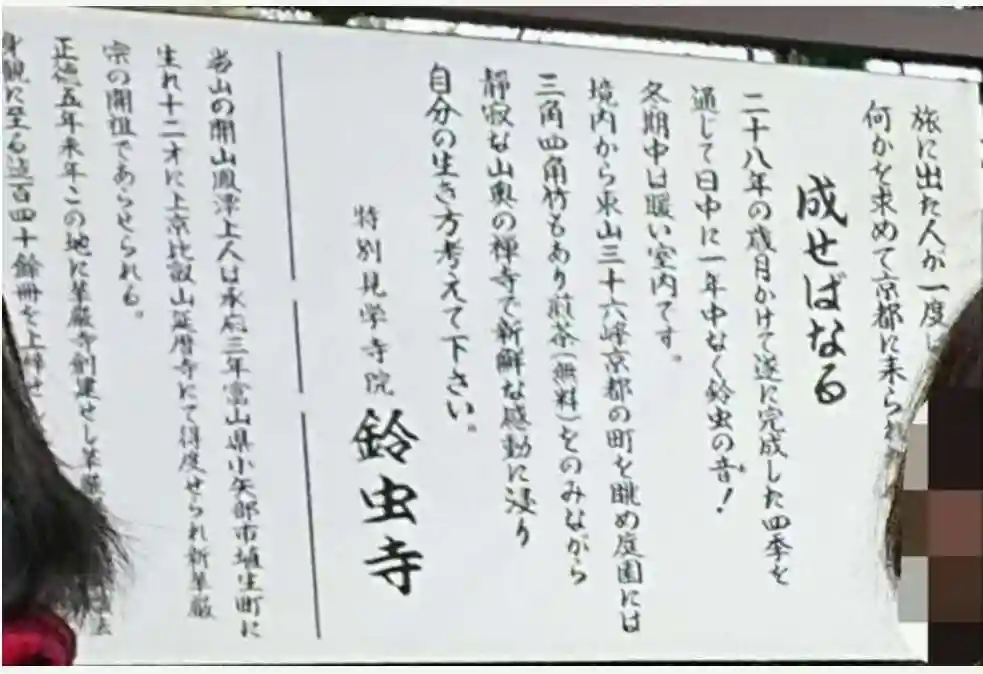 旅に出た人が一度は
何かを求めて京都に来られ
成せばなる
二十八年の歳月かけて遂に完成した四季を
通じて日中に一年中なく鈴虫の音！
冬期中は暖い室内です。
境内から東山三十六峰京都の町を眺め庭園には
三角四角竹もあり煎茶(無料)をのみながら
静寂な山奥の禅寺で新鮮な感動に浸り
自分の生き方考えて下さい。
特別見学寺院 鈴虫寺
当山の開山鳳潭上人は承応三年富山県小矢部市埴生町に
生れ十二才に上京比叡山延暦寺にて得度せられ新華厳
宗の開祖であらせられる。
正徳五年来年この地に華厳寺創建せし華厳
身観に至る迄百四十餘冊を上梓せし